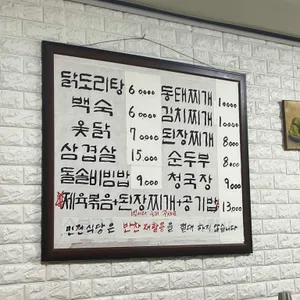 닭도리탕 60000 동태찌개 10000
백숙 60000 김치찌개 10000
옻닭 70000 된장찌개 8000
삼겹살 15,000 순두부 8000
돌솥비빔밥 9,000 청국장 9,000
제육볶음+된장찌개+공기밥 13,000
민천식당은 반찬 재활용을 절대 하지 않습니다